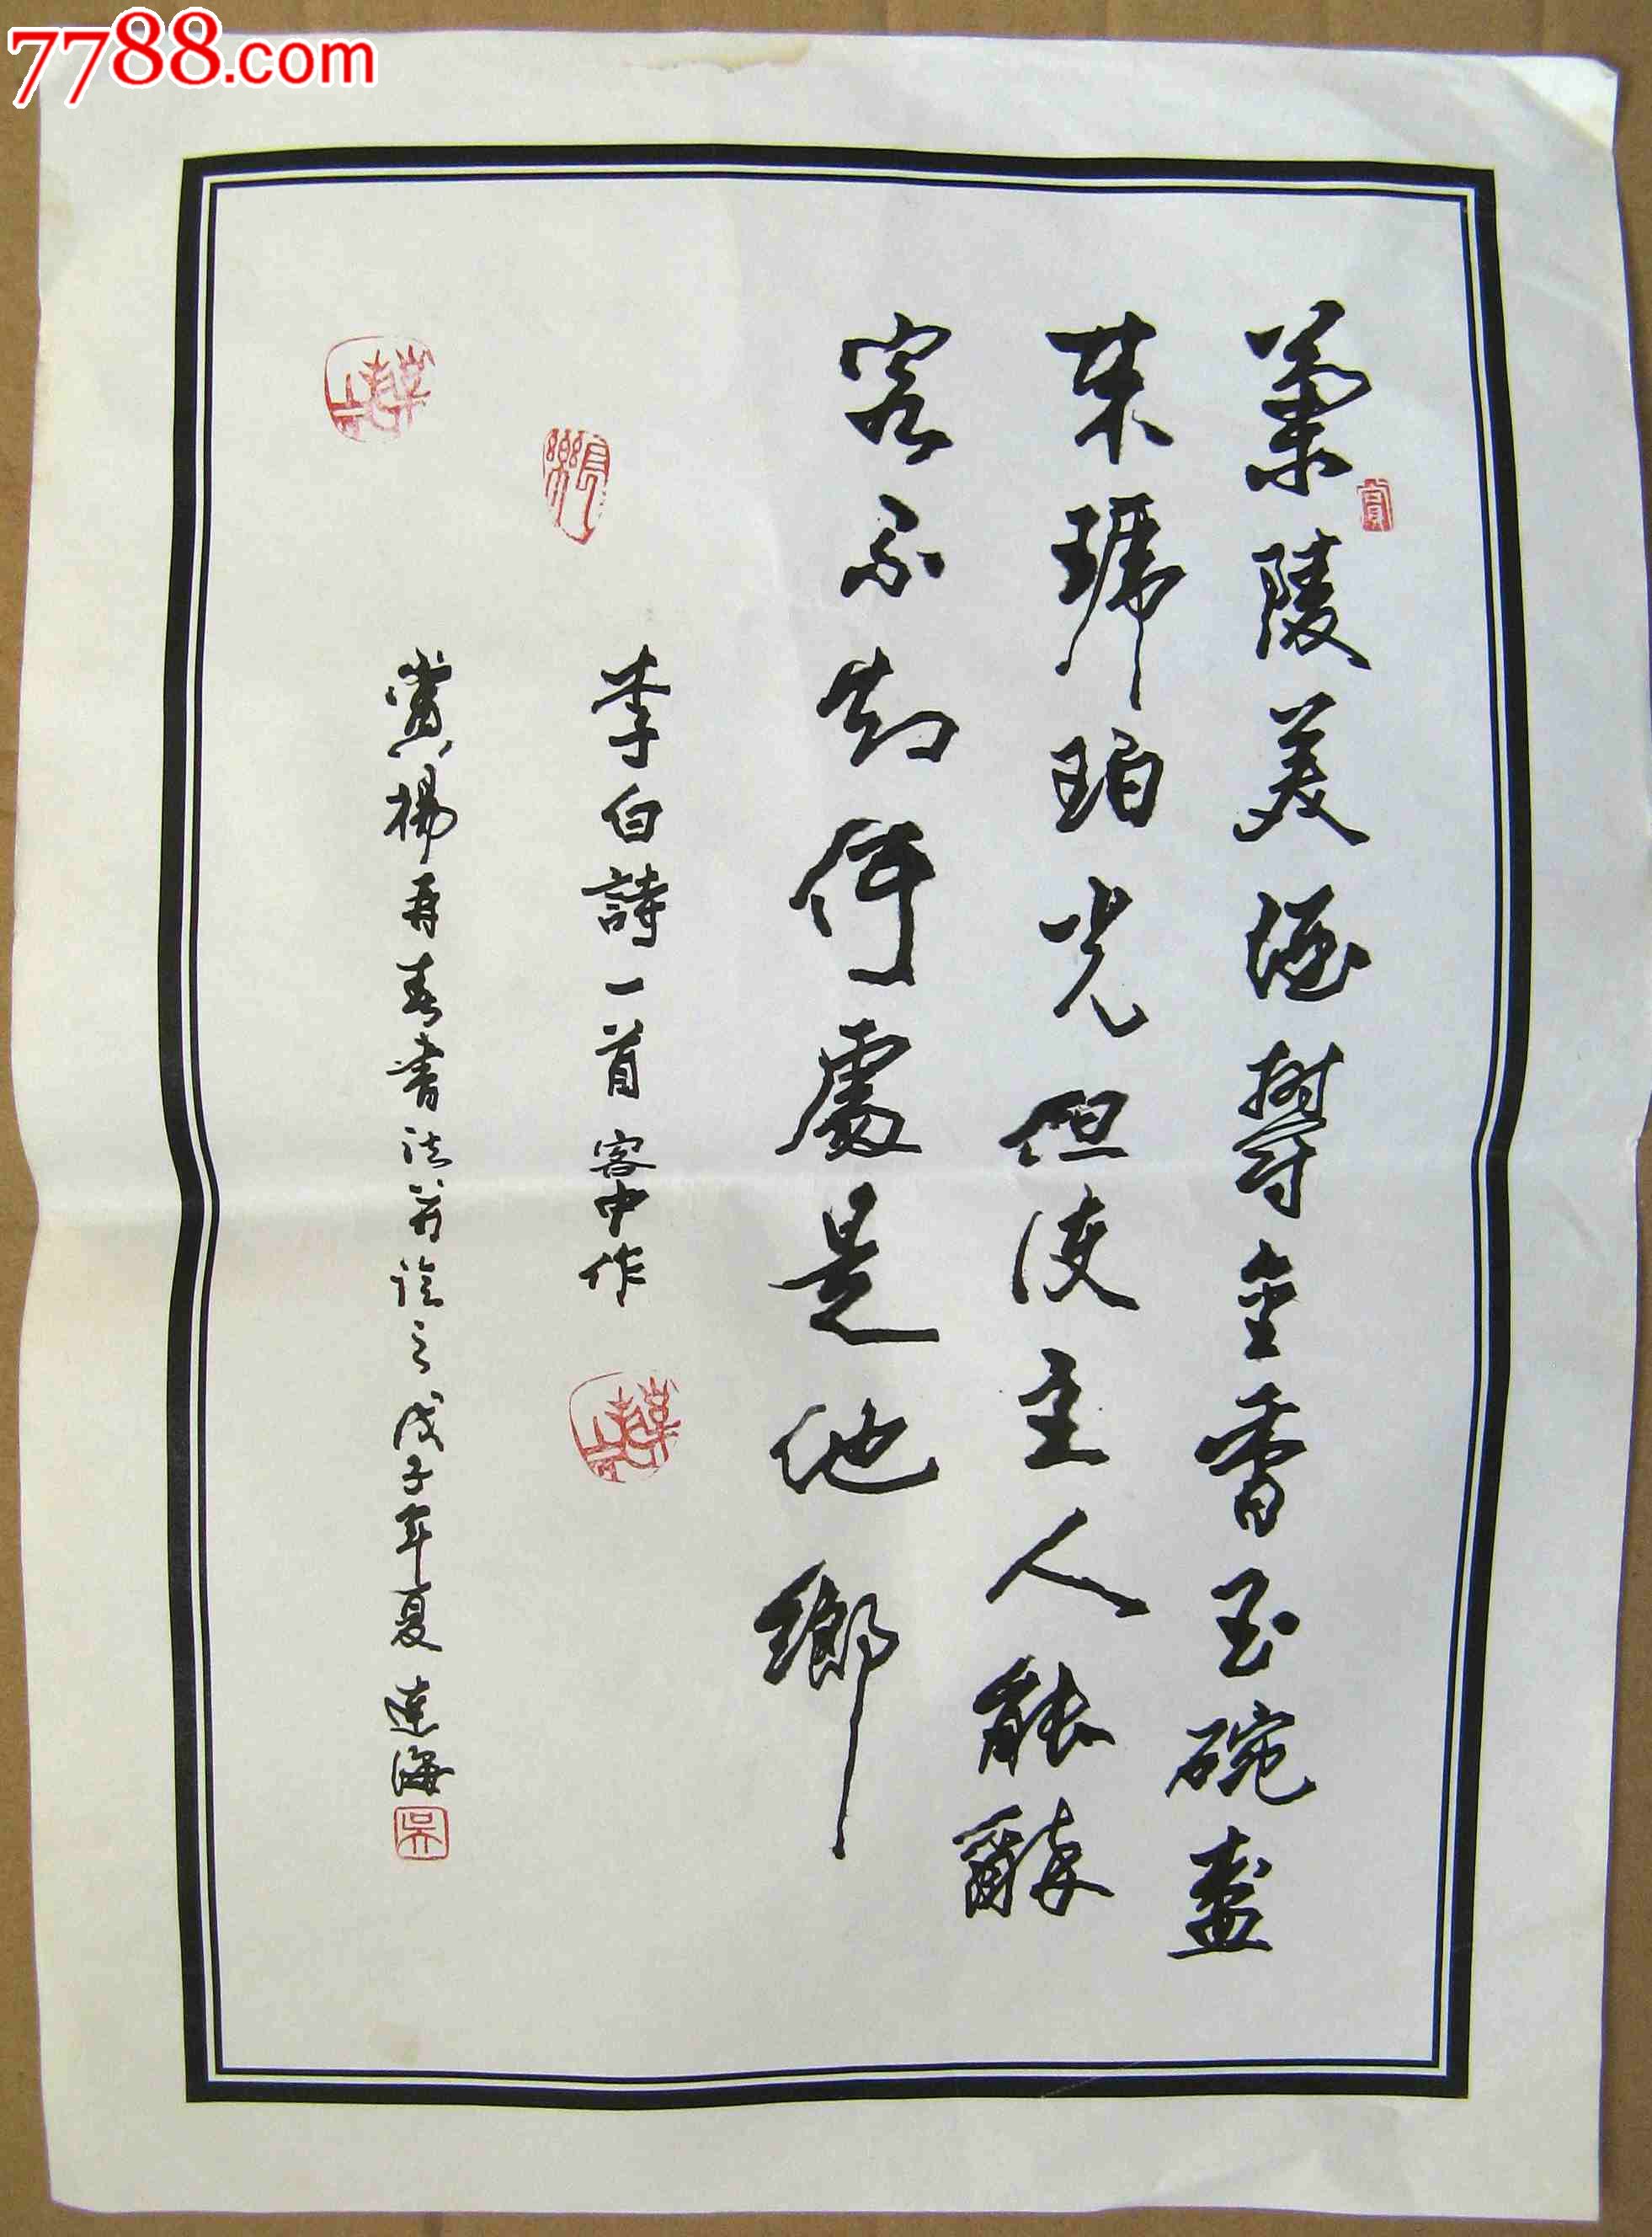 7788.com
蘭陵美酒鬱金香玉碗盛
来琥珀光但使主人能醉
客不知何處是他鄉
長樂
李白詩一首 客中作
賞楊再春書法 臨之戊子年夏 連海
吴